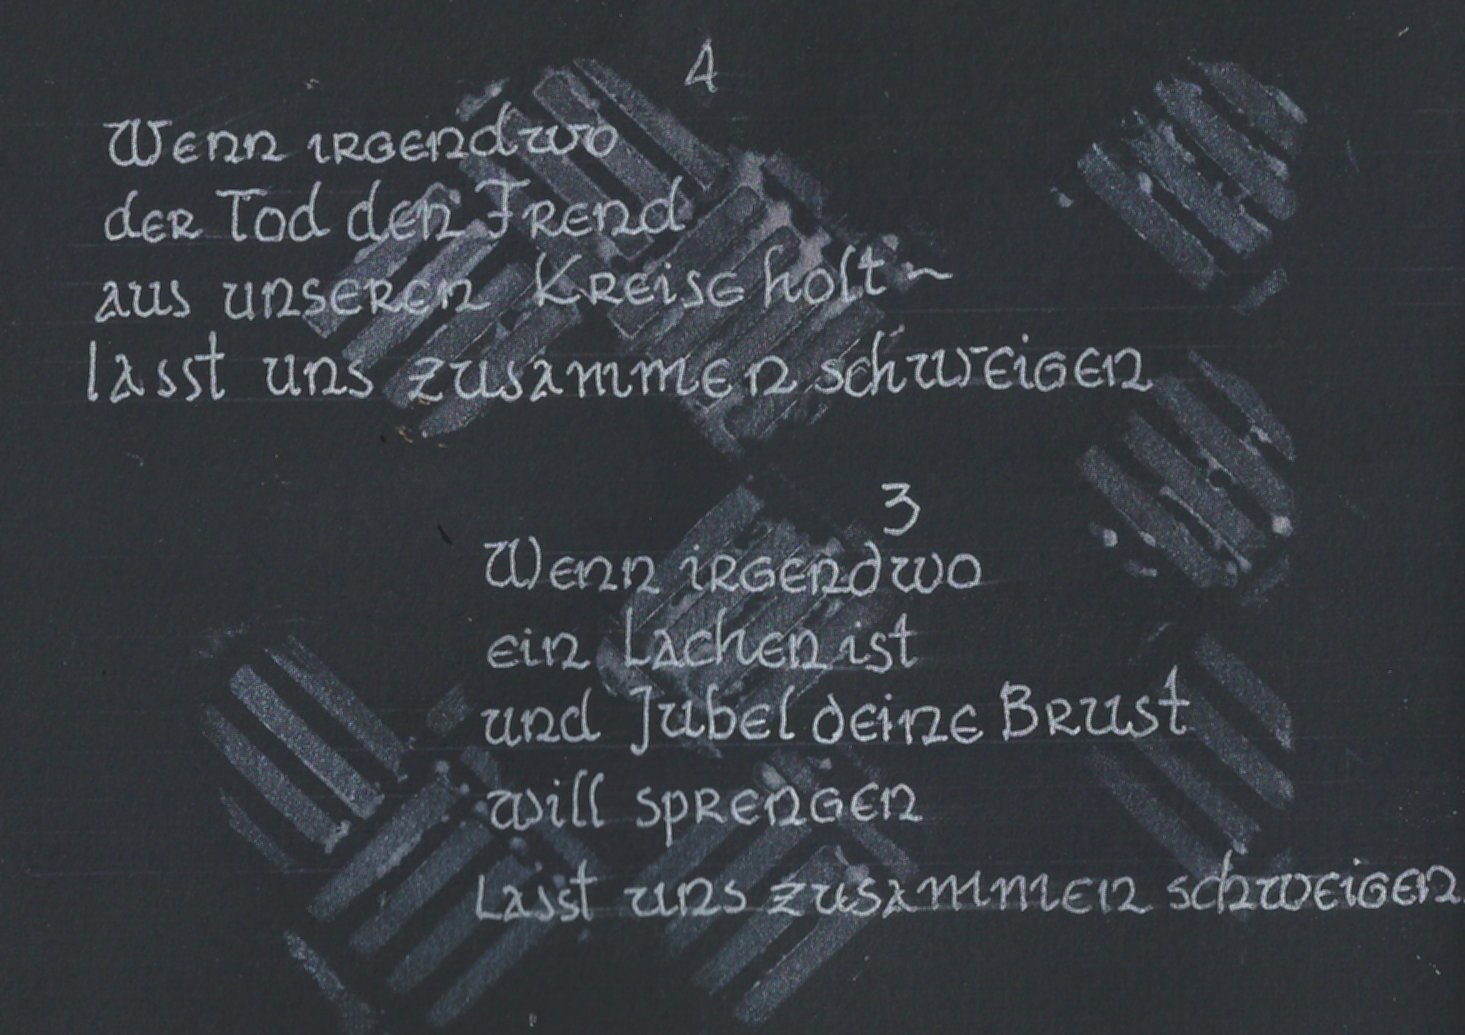 4
Wenn irgendwo
der Tod den Frend
aus unseren Kreise holt ~
lasst uns zusammen schweigen
3
Wenn irgendwo
ein Lachen ist
und Jubel deine Brust
will sprengen
Lasst uns zusammen schweigen.